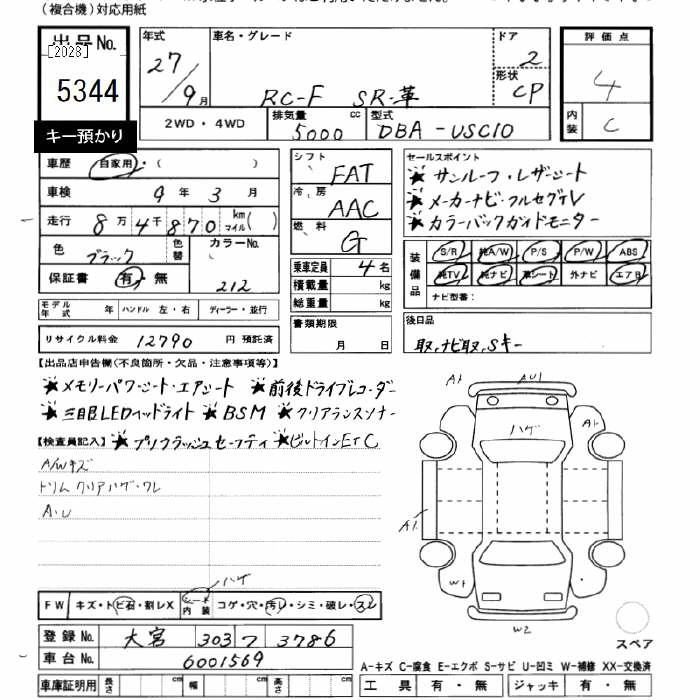 (複合機)対応用紙
出品No.
[2028]
5344
キー預かり
年式 車名・グレード ドア 評価点
27/9月 RC-F SR・革 2 形状 CP 4
2WD・4WD 排気量 5000 cc 型式 DBA-USC10 内装 C
車歴 自家用・( )
車検 9年 3月
走行 8万4千870 km マイル( )
色 ブラック 色替 カラーNo. 212
保証書 有・無
モデル年式 年 ハンドル 左・右 ディーラー・並行
リサイクル料金 12790 円 預託済
シフト FAT
冷房 AAC
燃料 G
乗車定員 4名
積載量 kg
総重量 kg
書類期限 月 日
セールスポイント
★サンルーフ・レザーシート
★メーカーナビ・フルセグTV
★カラーバックガイドモニター
装備品 S/R 純A/W P/S P/W ABS
純TV 純ナビ 革シート 外ナビ エアB
ナビ型番:
後日品
取、ナビ取、Sキー
【出品店申告欄(不良箇所・欠品・注意事項等)】
★メモリーパワーシート・エアシート ★前後ドライブレコーダー
★三眼LEDヘッドライト ★BSM ★クリアランスソナー
【検査員記入】★プリクラッシュセーフティ ★ビルトインETC
A/Wキズ
トリム クリアハゲ・ワレ
A・U
A1 AU1
ハゲ A1
A1
W1
W2
スペア
ハゲ
FW キズ・トビ石・割レX シート内装 コゲ・穴・汚レ・シミ・破レ・スレ
登録No. 大宮 303 フ 3786
車台No. 6001569
車庫証明用 長さ cm 幅 cm 高さ cm
A-キズ C-腐食 E-エクボ S-サビ U-凹ミ W-補修 XX-交換済
工具 有・無 ジャッキ 有・無